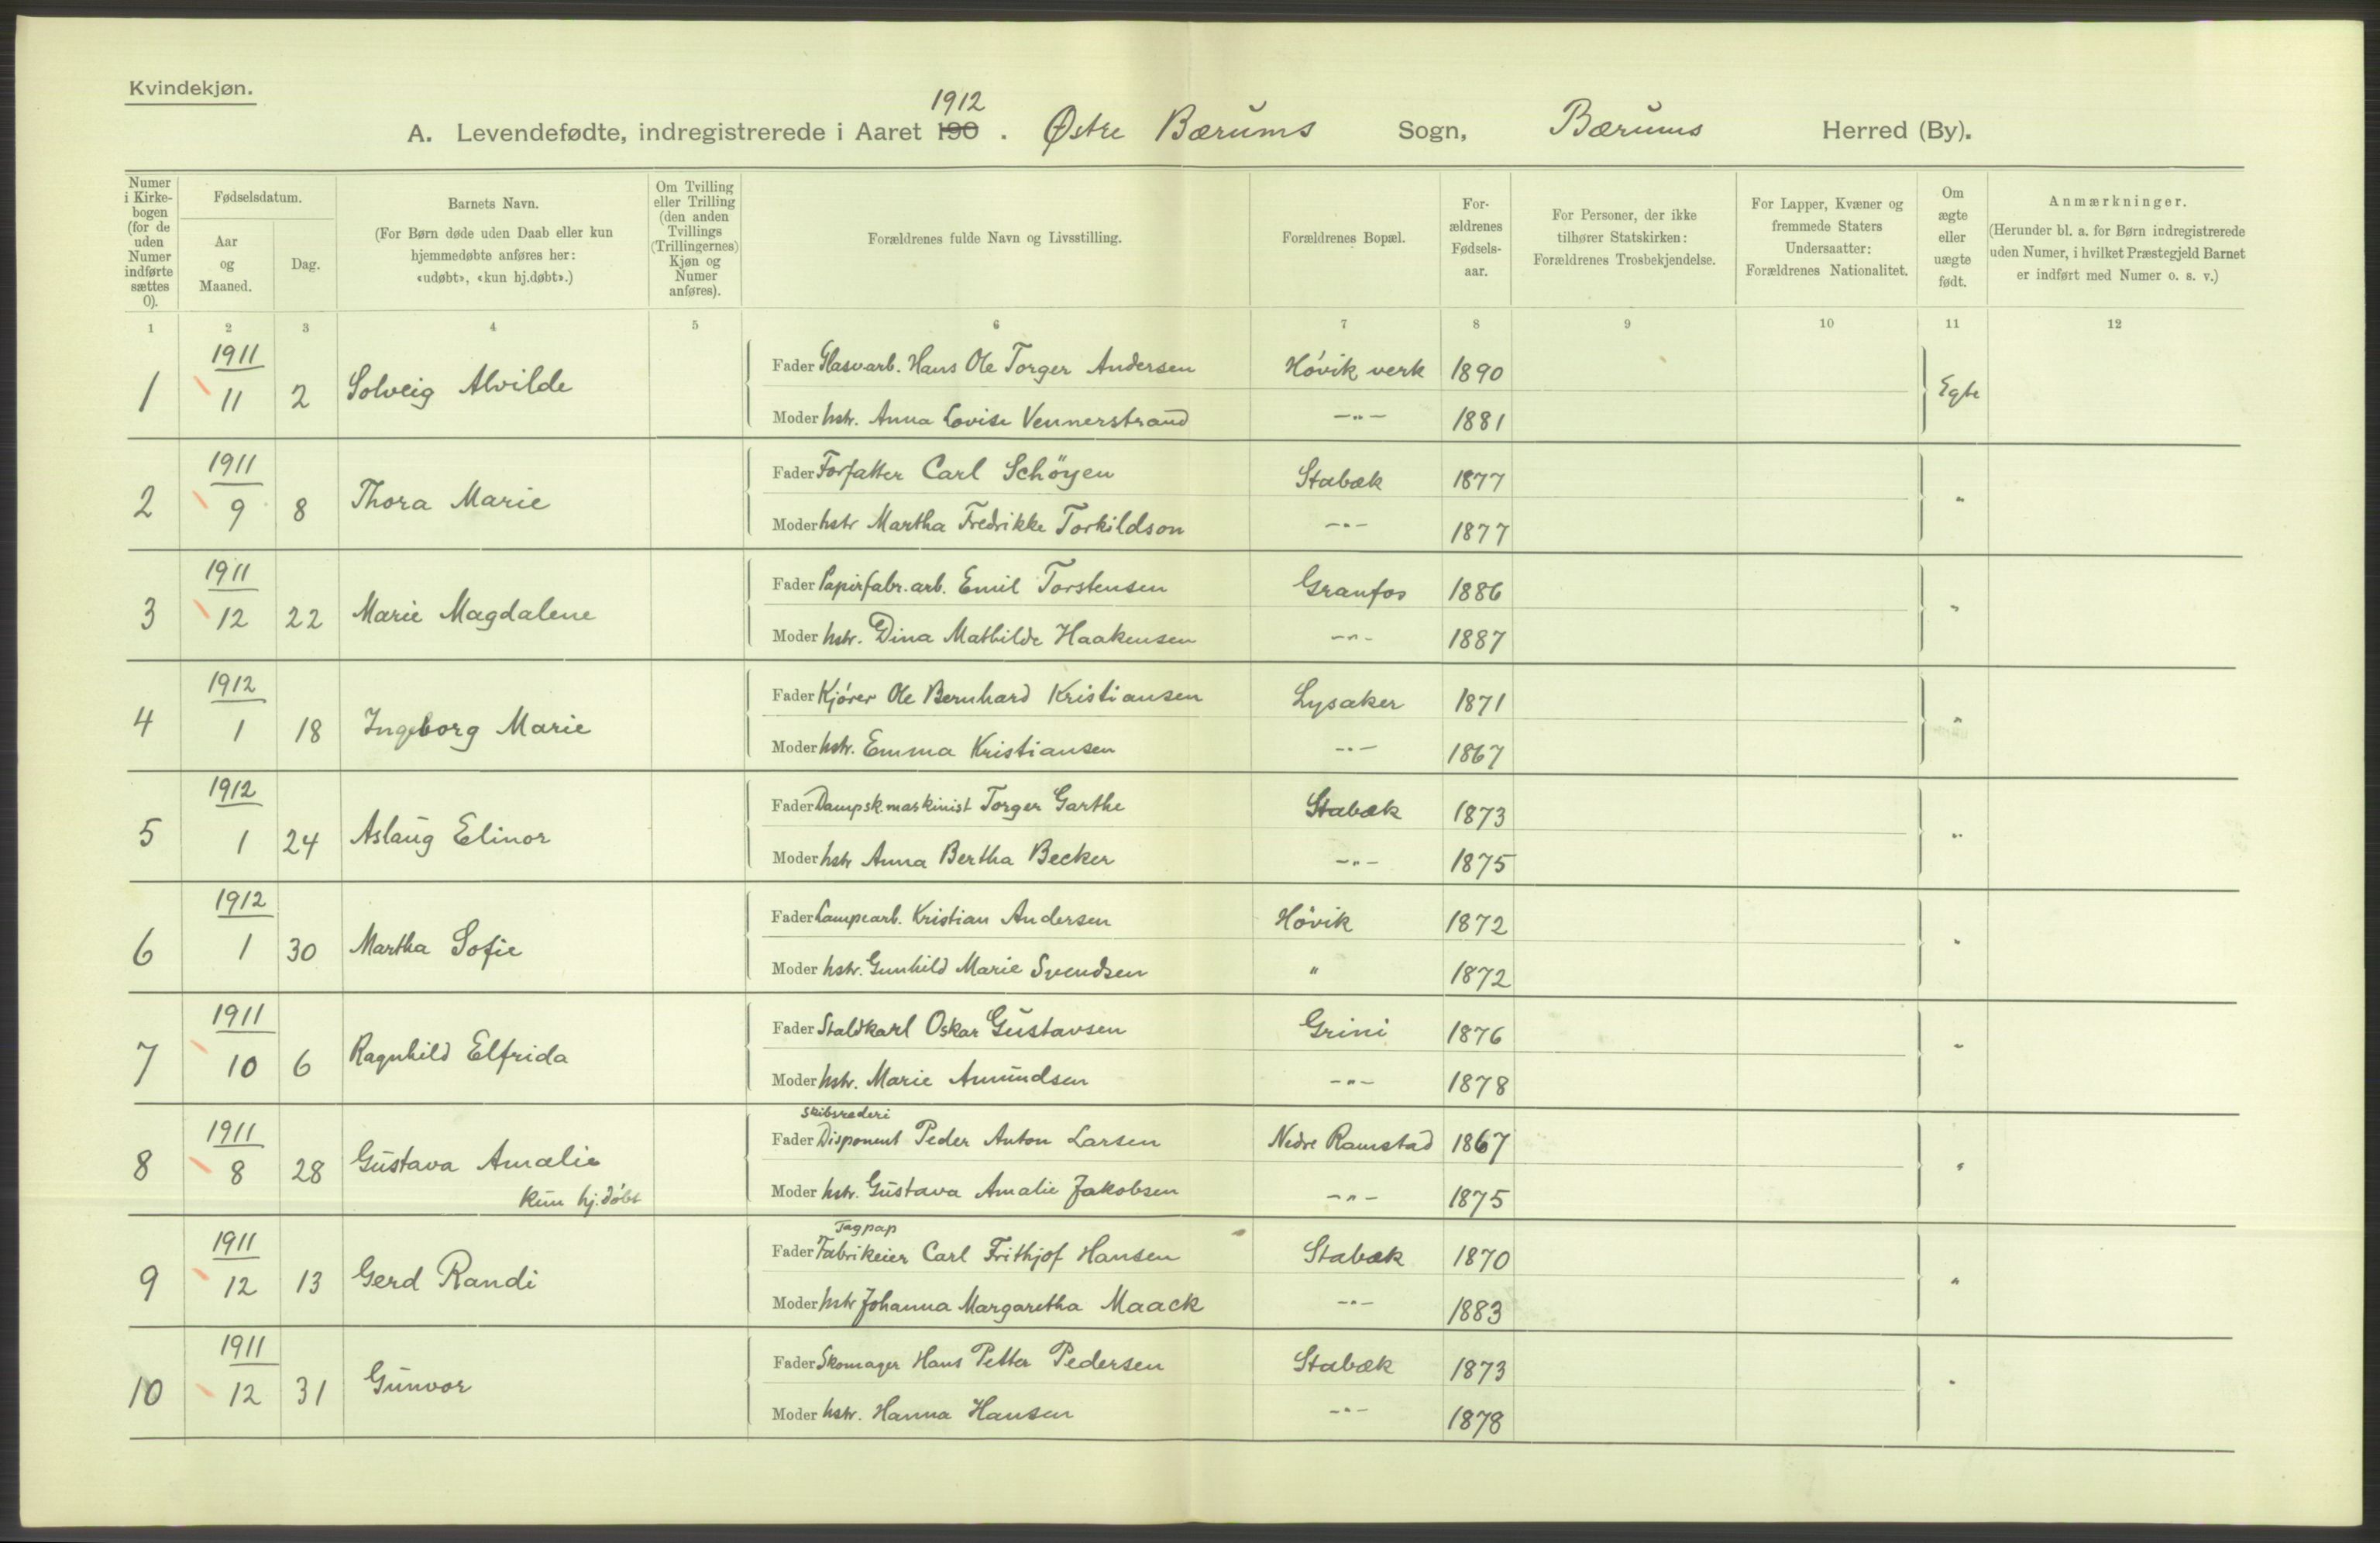 Kvindekjøn.
1912
A. Levendefødte, indregistrerede i Aaret 190 . Østre Bærums Sogn, Bærums Herred (By).
Numer i Kirkebogen (for de uden Numer indførte sættes 0).
Fødselsdatum.
Aar og Maaned.
Dag.
Barnets Navn.
(For Børn døde uden Daab eller kun hjemmedøbte anføres her: «udøbt», «kun hj.døbt».)
Om Tvilling eller Trilling (den anden Tvillings (Trillingernes) Kjøn og Numer anføres).
Forældrenes fulde Navn og Livsstilling.
Forældrenes Bopæl.
Forældrenes Fødselsaar.
For Personer, der ikke tilhører Statskirken: Forældrenes Trosbekjendelse.
For Lapper, Kvæner og fremmede Staters Undersaatter: Forældrenes Nationalitet.
Om ægte eller uægte født.
Anmærkninger.
(Herunder bl. a. for Børn indregistrerede uden Numer, i hvilket Præstegjeld Barnet er indført med Numer o. s. v.)
1 2 3 4 5 6 7 8 9 10 11 12
1911
1 11 2 Solveig Alvilde
Fader Glasvarb. Hans Ole Torger Andersen Høvik verk 1890 Egte
Moder hstr. Anna Lovise Vennerstrand —"— 1881
1911
2 9 8 Thora Marie
Fader Forfatter Carl Schöyen Stabæk 1877 "
Moder hstr Martha Fredrikke Torkildson —"— 1877
1911
3 12 22 Marie Magdalene
Fader Papirfabr.arb. Emil Torstensen Granfos 1886 "
Moder hstr. Dina Mathilde Haakensen —"— 1887
1912
4 1 18 Ingeborg Marie
Fader Kjører Ole Bernhard Kristiansen Lysaker 1871 "
Moder hstr. Emma Kristiansen —"— 1867
1912
5 1 24 Aslaug Elinor
Fader Dampsk maskinist Torger Garthe Stabæk 1873 "
Moder hstr Anna Bertha Becker —"— 1875
1912
6 1 30 Martha Sofie
Fader Lampearb. Kristian Andersen Høvik 1872 "
Moder hstr. Gunhild Marie Svendsen " 1872
1911
7 10 6 Ragnhild Elfrida
Fader Staldkarl Oskar Gustavsen Grini 1876 "
Moder hstr. Marie Amundsen —"— 1878
1911
8 8 28 Gustava Amalie
kun hj.døbt
skibsrederi
Fader Disponent Peder Anton Larsen Nedre Ramstad 1867 "
Moder hstr. Gustava Amalie Jakobsen —"— 1875
1911
9 12 13 Gerd Randi
Tagpap
Fader Fabrikeier Carl Frithjof Hansen Stabæk 1870 "
Moder hstr Johanna Margaretha Maack —"— 1883
1911
10 12 31 Gunvor
Fader Skomager Hans Petter Pedersen Stabæk 1873 "
Moder hstr. Hanna Hansen —"— 1878